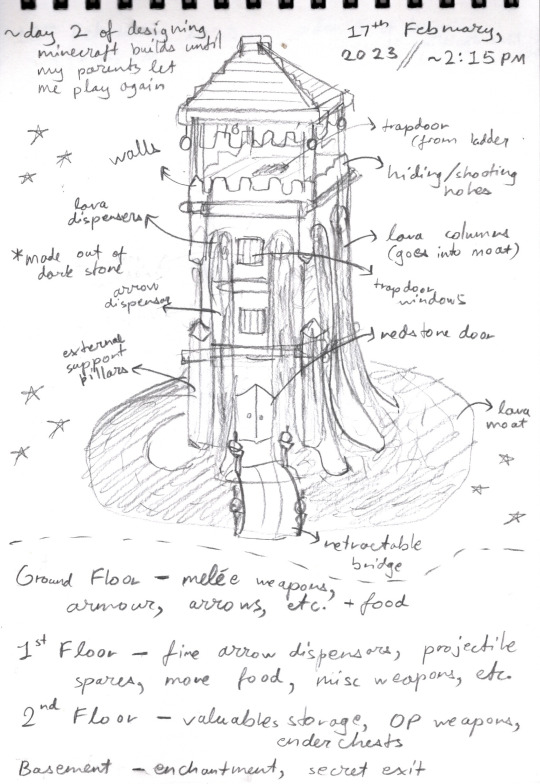 ~day 2 of designing
minecraft builds until
my parents let
me play again
17th February,
2023 // ~2:15PM
walls
trapdoor
(from ladder
hiding/shooting
holes
lava
dispensers
*made out of
dark stone
lava columns
(goes into moat)
arrow
dispensers
trapdoor
windows
redstone door
external
support
pillars
lava
moat
retractable
bridge
Ground Floor – melée weapons,
armour, arrows, etc. + food
1st Floor – fire arrow dispensers, projectile
spares, more food, misc weapons, etc.
2nd Floor – valuables storage, OP weapons,
ender chests
Basement – enchantment, secret exit